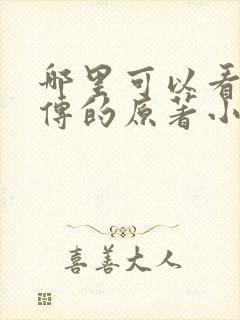 哪里可以看
傅的原著小
喜善大人